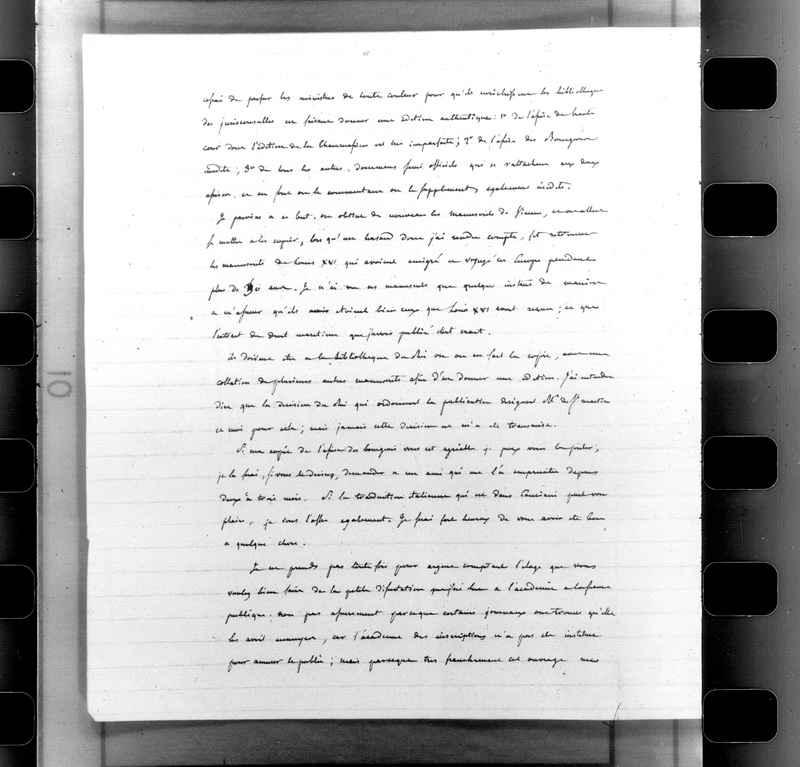 cessé de presser les ministres de toute couleur pour qu'ils enrichissent les bibliotheques
des jurisconsultes en faisant donner une edition authentique : 1° de l'assise de haute
cour dont l'edition de la Thaumassiere est tres imparfaite ; 2° de l'assise des Bourgeois
inedite ; 3° de tous les autres documens semi officiels qui se rattachent aux deux
assises, et en font ou le commentaire ou le supplement, egalement inedits.
Je parvins a ce but. on obtint de nouveau les manuscrits de Venise, et on allait
se mettre a les copier, lorsqu'un hasard dont j'ai rendu compte, fit retrouver
les manuscrits de Louis XVI qui avoient emigré et voyagé en Europe pendant
plus de 30 ans. Je n'ai vu ces manuscrits que quelques instans de maniere
a m'assurer qu'ils etoient bien ceux que Louis XVI avait reçus ; et que
l'extrait de droit maritime que j'avois publié etoit exact.
ils doivent etre a la bibliotheque du Roi ou on en fait la copie, avec une
collation de plusieurs autres manuscrits afin d'en donner une edition. J'ai entendu
dire que la decision du Roi qui ordonnoit la publication designoit Mr de St martin
et moi pour cela ; mais jamais cette decision ne m'a ete transmise.
Si une copie de l'assise des bourgeois vous est agreable je puis vous la preter ;
je la ferai, si vous le desirez, demander a un ami qui me l'a empruntée depuis
deux à trois mois. Si la traduction italienne qui est dans Canciani peut vous
plaire, je vous l'offre egalement. Je serai fort heureux de vous avoir ete bon
a quelque chose.
Je ne prends pas toutefois pour argent comptant l'eloge que vous
voulez bien faire de la petite dissertation que j'ai lue a l'academie a la seance
publique ; non pas assurement parceque certains journaux ont trouvé qu'elle
les avoit ennuyés, car l'academie des inscriptions n'a pas ete instituée
pour amuser le public ; mais parceque tres franchement cet ouvrage me